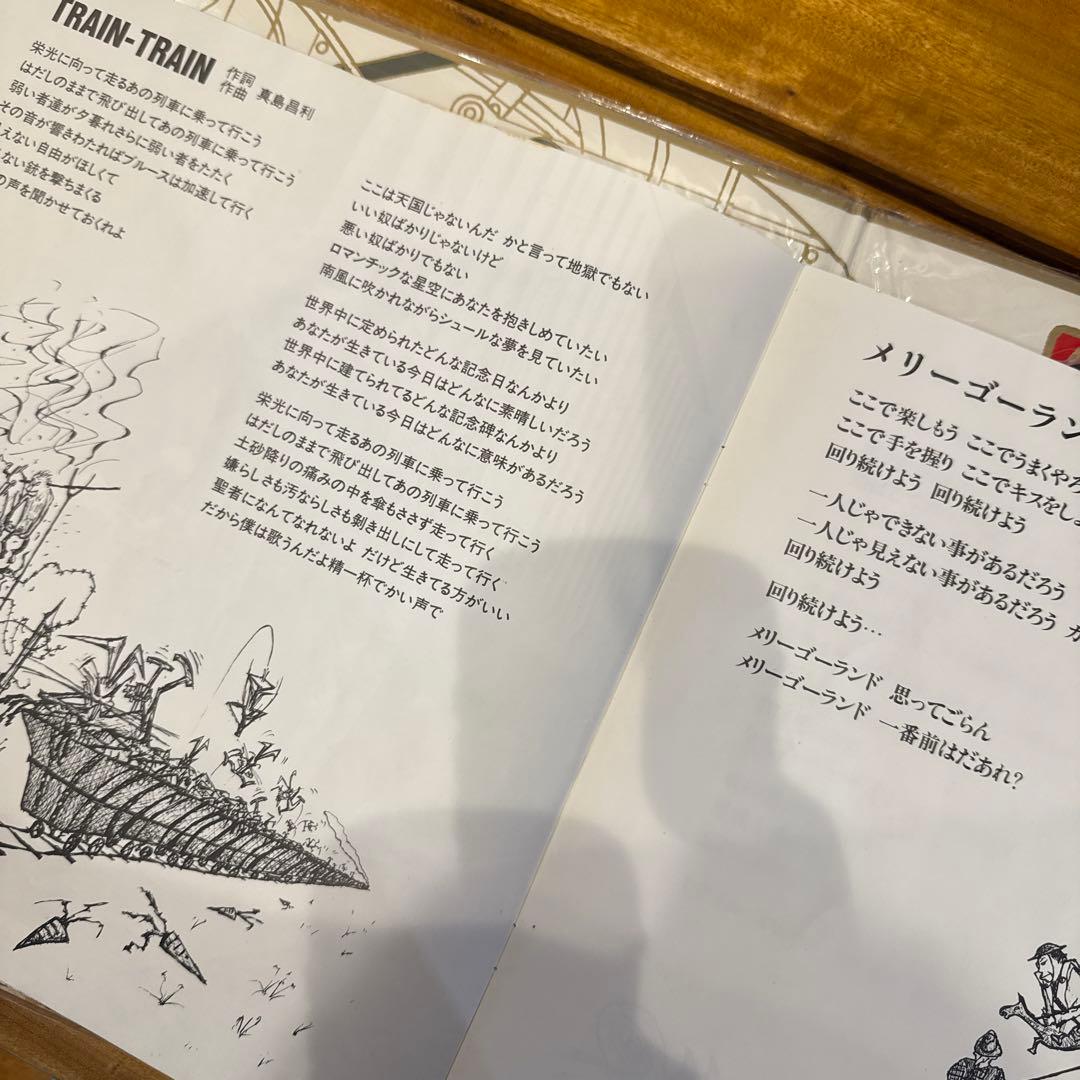 TRAIN-TRAIN
作詞 作曲 真島昌利
栄光に向って走るあの列車に乗って行こう
はだしのままで飛び出してあの列車に乗って行こう
弱い者達が夕暮れさらに弱い者をたたく
その音が響きわたればブルースは加速して行く
えない自由がほしくて
ない銃を撃ちまくる
の声を聞かせておくれよ
ここは天国じゃないんだ かと言って地獄でもない
いい奴ばかりじゃないけど
悪い奴ばかりでもない
ロマンチックな星空にあなたを抱きしめていたい
南風に吹かれながらシュールな夢を見ていたい
世界中に定められたどんな記念日なんかより
あなたが生きている今日はどんなに素晴しいだろう
世界中に建てられてるどんな記念碑なんかより
あなたが生きている今日はどんなに意味があるだろう
栄光に向って走るあの列車に乗って行こう
はだしのままで飛び出してあの列車に乗って行こう
土砂降りの痛みの中を傘もささず走って行く
嫌らしさも汚ならしさも剝き出しにして走って行く
聖者になんてなれないよ だけど生きてる方がいい
だから僕は歌うんだよ精一杯でかい声で
メリーゴーラン
ここで楽しもう ここでうまくやろ
ここで手を握り ここでキスをしよ
回り続けよう 回り続けよう
一人じゃできない事があるだろう
一人じゃ見えない事があるだろう
回り続けよう
回り続けよう…
メリーゴーランド 思ってごらん
メリーゴーランド 一番前はだあれ?